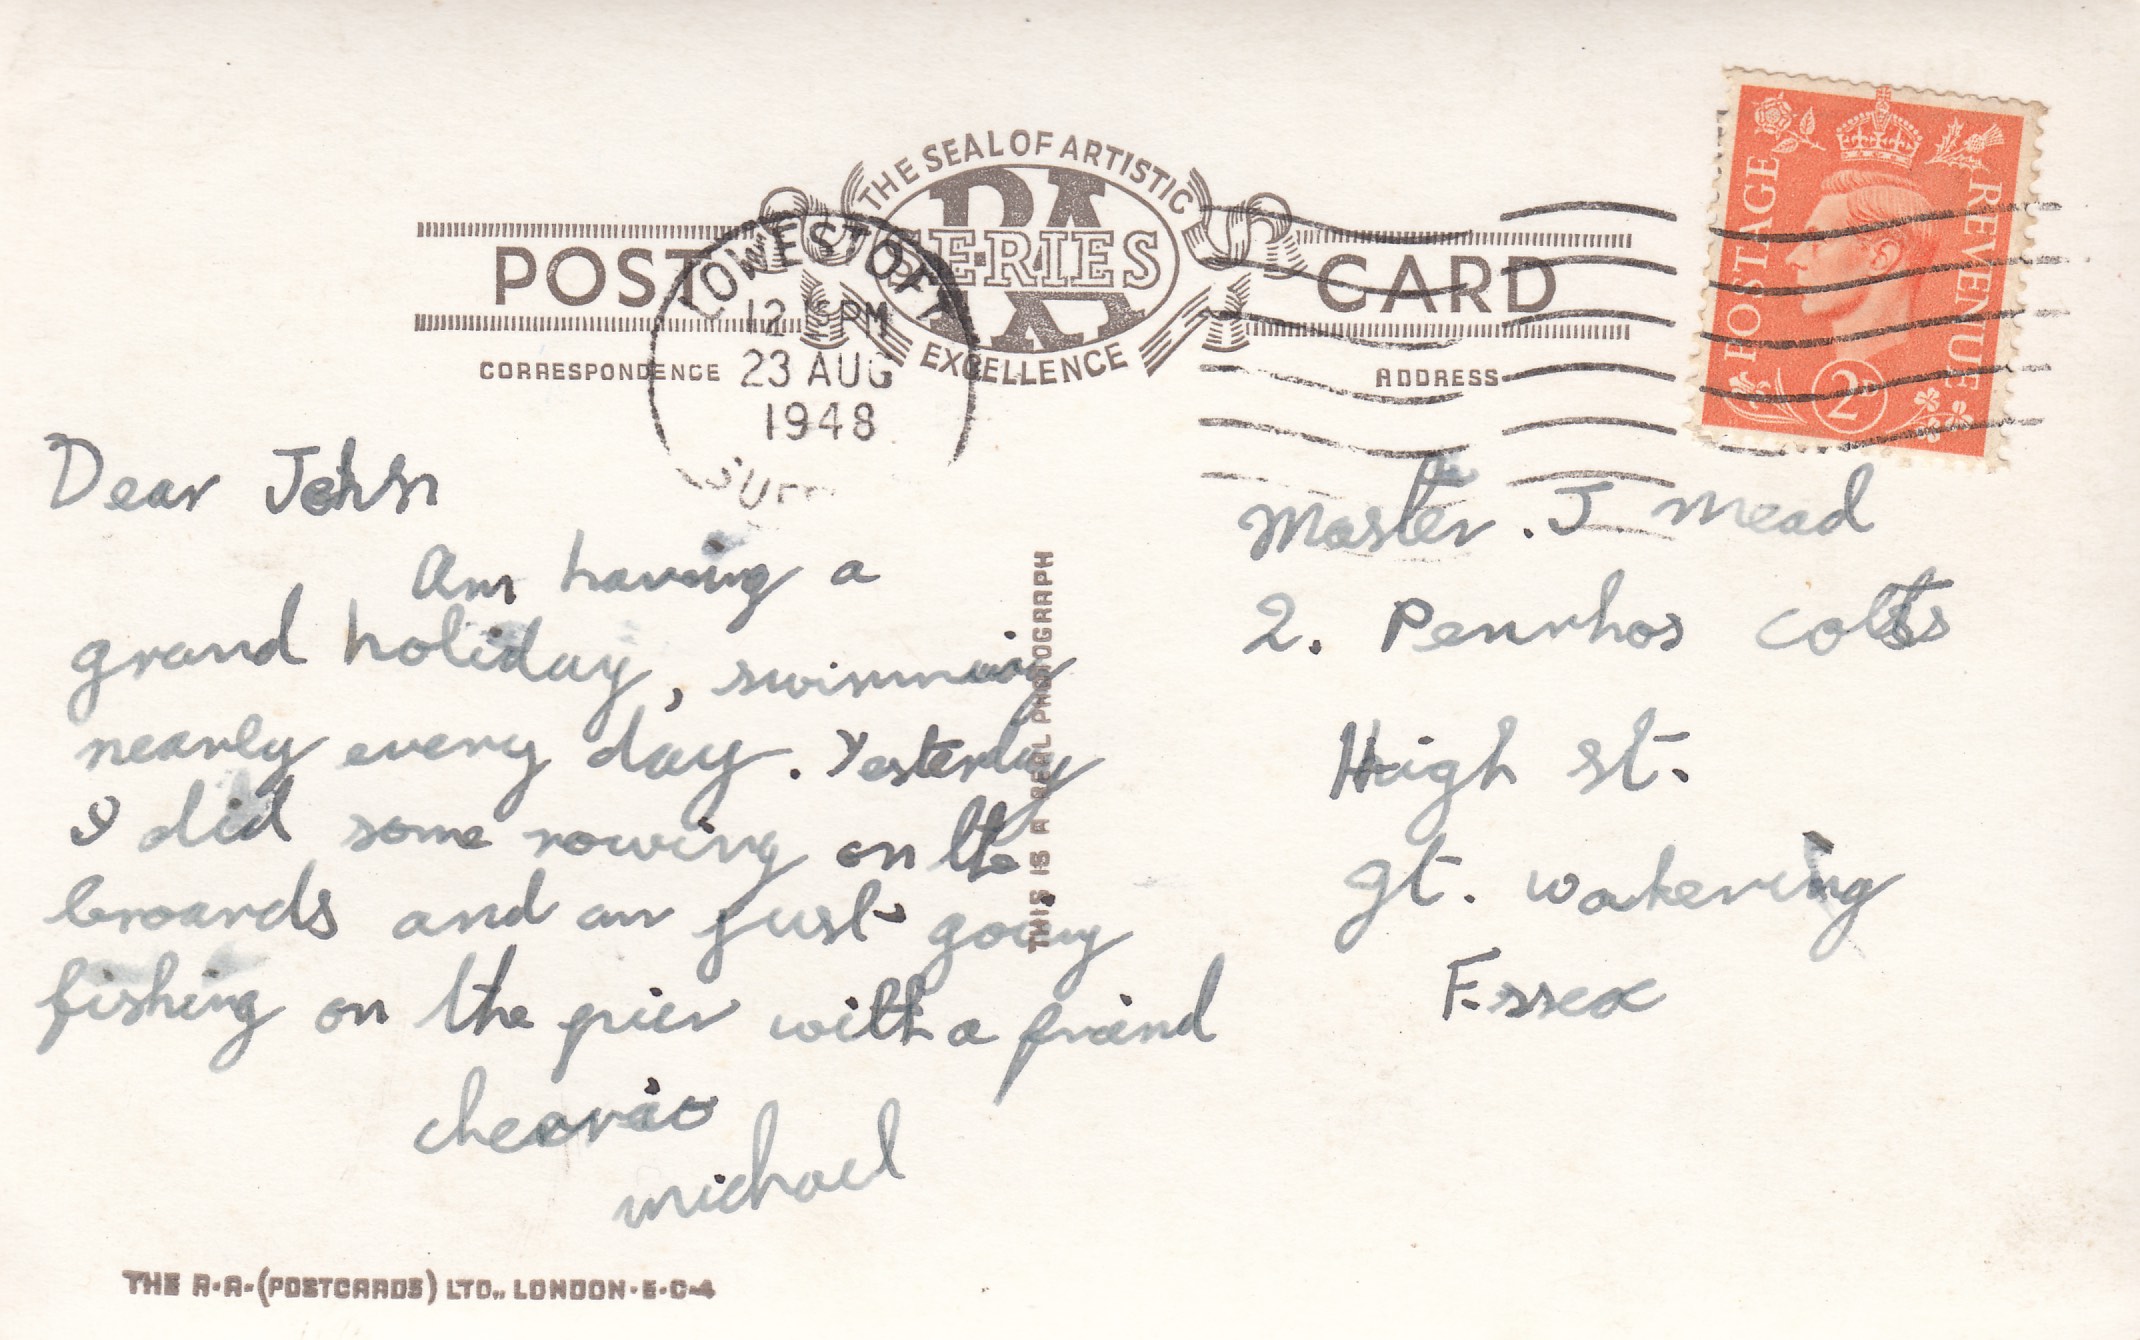 THE SEAL OF ARTISTIC
RA
SERIES
EXCELLENCE
POST CARD
CORRESPONDENCE
ADDRESS
LOWESTOFT
12 15 PM
23 AUG
1948
POSTAGE
REVENUE
2D
Dear John
Am having a
grand holiday, swimming
nearly every day. Yesterday
I did some rowing on the
broards and am just going
fishing on the pier with a friend
cheerio
michael
Master. J Mead
2. Penrhos cotts
High st.
gt. wakering
Essex
THIS IS A REAL PHOTOGRAPH
THE R.A. (POSTCARDS) LTD., LONDON.E.C.4